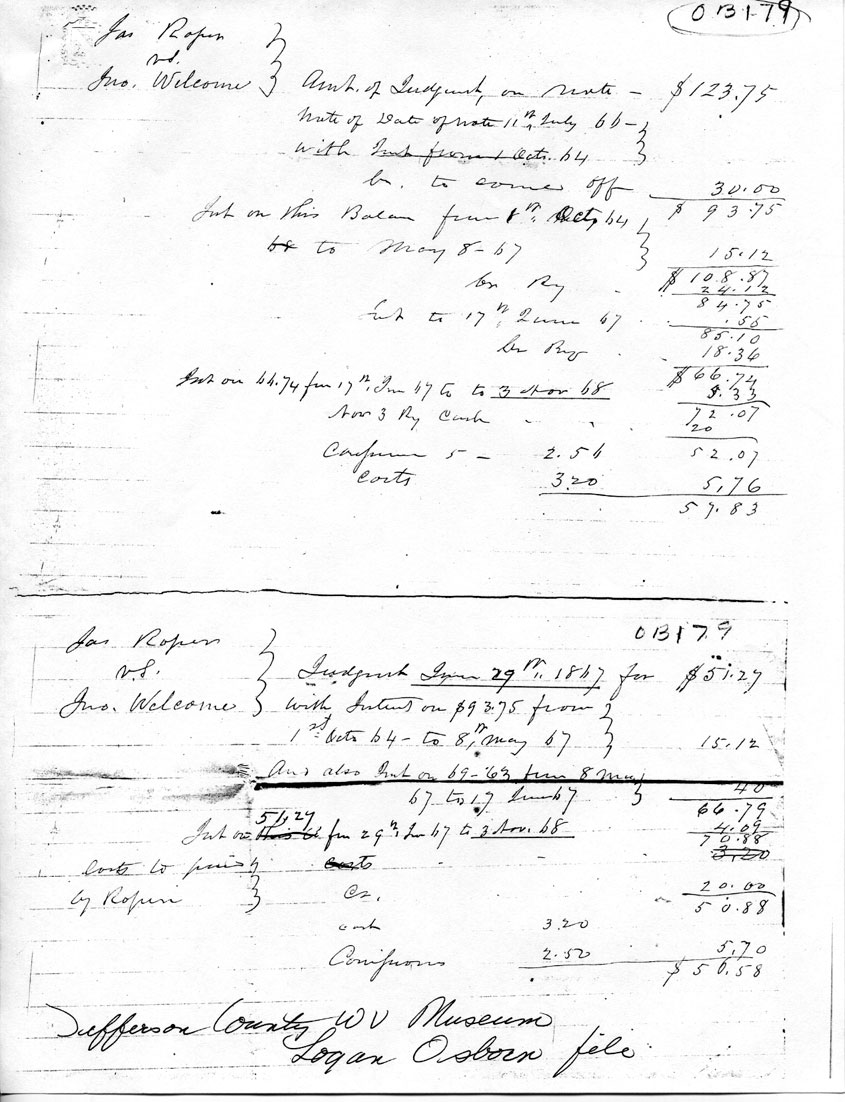 OB179
Jas Roper
vs.
Jno. Welcome
Amt. of Judgmt, on note – $123.75
Note of Date of note 11th July 66 –
with Int from 1 Octo. 64
Cr. to come off 30.00
$ 93.75
Int on this Balan from 8th Octo 64
to May 8 – 67 15.12
$108.87
Cr By 24.12
84.75
Int to 17th June 67 .55
85.10
Cr By 18.36
$66.74
Int on 66.74 fm 17th Jun 67 to to 3 Nov 68 5.33
72.07
Nov 3 By Cash - - - 20
52.07
5 – 2.56
Costs 3.20 5.76
57.83
OB179
Jas Roper
vs.
Jno. Welcome
Judgmt June 29th 1867 for $51.27
with Interest on $93.75 from
1st Octo 64 – to 8th, May 67 15.12
And also Int on 69–63 from 8 May
67 to 17 Jun 67 40
66.79
51.27
Int on fm 29th Jun 67 to 3 Nov. 68 4.09
70.88
Costs to paid costs - - 3.20
by Roper Cr. 20.00
50.88
cost 3.20
Comissions 2.50 5.70
$56.58
Jefferson County WV Museum
Logan Osborn file